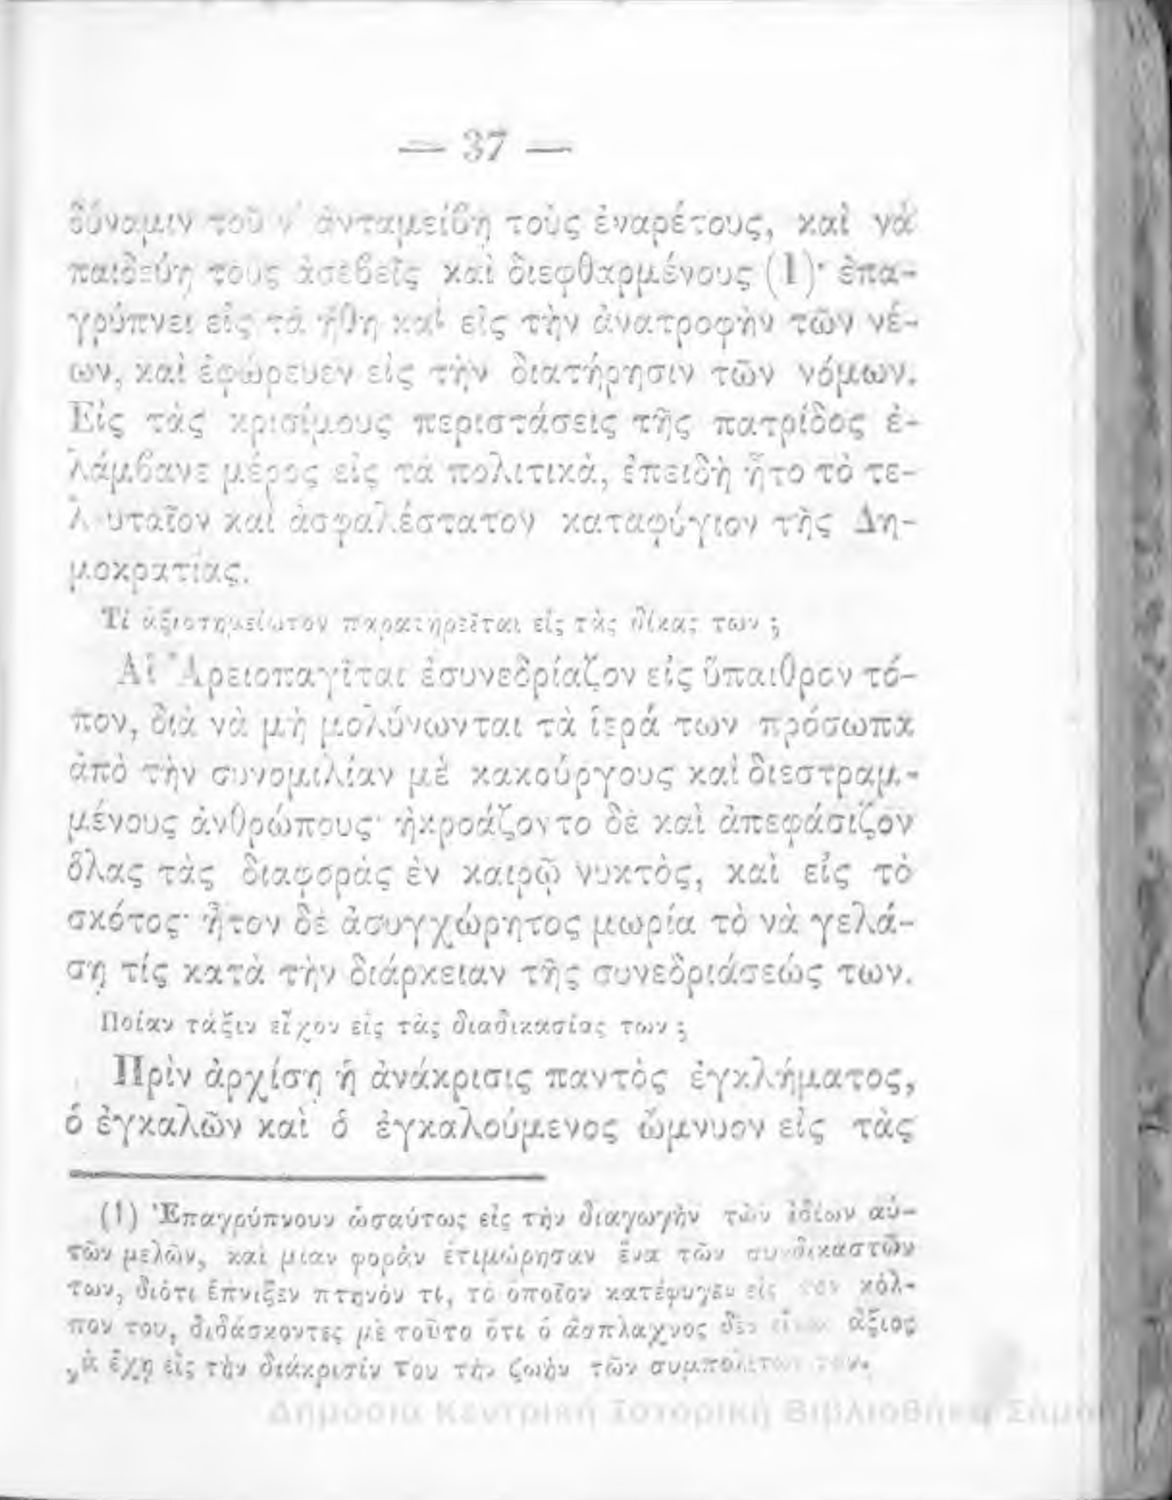 — 37 —
δύναμιν τοῦ ν' ἀνταμείβῃ τοὺς ἐναρέτους, καὶ νὰ
παιδεύῃ τοὺς ἀσεβεῖς καὶ διεφθαρμένους (1)· ἐπα-
γρύπνει εἰς τὰ ἤθη καὶ εἰς τὴν ἀνατροφὴν τῶν νέ-
ων, καὶ ἐφώρευεν εἰς τὴν διατήρησιν τῶν νόμων.
Εἰς τὰς κρισίμους περιστάσεις τῆς πατρίδος ἐ-
λάμβανε μέρος εἰς τὰ πολιτικὰ, ἐπειδὴ ἦτο τὸ τε-
λευταῖον καὶ ἀσφαλέστατον καταφύγιον τῆς Δη-
μοκρατίας.
Τί ἀξιοσημείωτον παρατηρεῖται εἰς τὰς δίκας των ;
Αἱ Ἀρειοπαγῖται ἐσυνεδρίαζον εἰς ὕπαιθρον τό-
πον, διὰ νὰ μὴ μολύνωνται τὰ ἱερά των πρόσωπα
ἀπὸ τὴν συνομιλίαν μὲ κακούργους καὶ διεστραμ-
μένους ἀνθρώπους· ἠκροάζοντο δὲ καὶ ἀπεφάσιζον
ὅλας τὰς διαφορὰς ἐν καιρῷ νυκτὸς, καὶ εἰς τὸ
σκότος· ἦτον δὲ ἀσυγχώρητος μωρία τὸ νὰ γελά-
σῃ τίς κατὰ τὴν διάρκειαν τῆς συνεδριάσεώς των.
Ποίαν τάξιν εἶχον εἰς τὰς διαδικασίας των ;
Πρὶν ἀρχίσῃ ἡ ἀνάκρισις παντὸς ἐγκλήματος,
ὁ ἐγκαλῶν καὶ ὁ ἐγκαλούμενος ὤμνυον εἰς τὰς
(1) Ἐπαγρύπνουν ὡσαύτως εἰς τὴν διαγωγὴν τῶν ἰδίων αὐ-
τῶν μελῶν, καὶ μίαν φορὰν ἐτιμώρησαν ἕνα τῶν συνδικαστῶν
των, διότι ἔπνιξεν πτηνόν τι, τὸ ὁποῖον κατέφυγεν εἰς τὸν κόλ-
πον του, διδάσκοντες μὲ τοῦτο ὅτι ὁ ἄσπλαχνος δὲν εἶναι ἄξιος
νὰ ἔχῃ εἰς τὴν διάκρισίν του τὴν ζωὴν τῶν συμπολιτῶν του.
Δημόσια Κεντρική Ιστορική Βιβλιοθήκη